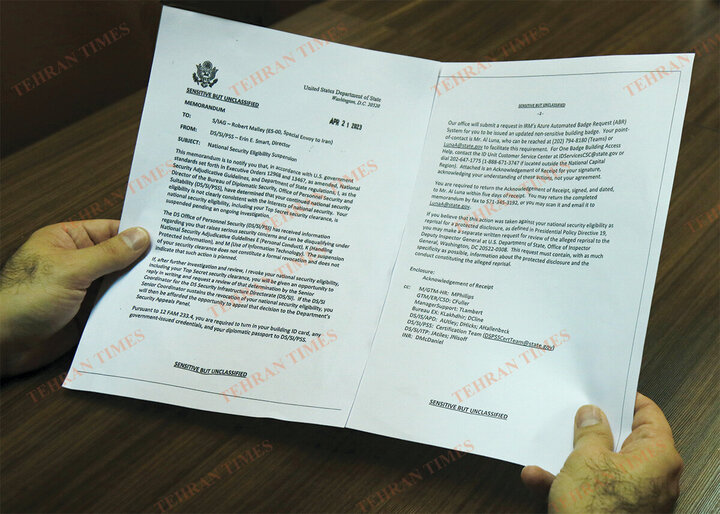 SENSITIVE BUT UNCLASSIFIED
United States Department of State
Washington, D.C. 20520
APR 21 2023
MEMORANDUM
TO: S/IAG – Robert Malley (ES-00, Special Envoy to Iran)
FROM: DS/SI/PSS – Erin E. Smart, Director
SUBJECT: National Security Eligibility Suspension
This memorandum is to notify you that, in accordance with U.S. government
standards set forth in Executive Orders 12968 and 13467, as amended, National
Security Adjudicative Guidelines, and Department of State regulations, I, as the
Director of the Bureau of Diplomatic Security, Office of Personnel Security and
Suitability (DS/SI/PSS), have determined that your continued national security
eligibility is not clearly consistent with the interests of national security. Your
national security eligibility, including your Top Secret security clearance, is
suspended pending an ongoing investigation.
The DS Office of Personnel Security (DS/SI/PSS) has received information
regarding you that raises serious security concerns and can be disqualifying under
National Security Adjudicative Guidelines E (Personal Conduct), K (Handling
Protected Information), and M (Use of Information Technology). This suspension
of your security clearance does not constitute a formal revocation and does not
indicate that such action is planned.
If, after further investigation and review, I revoke your national security eligibility,
including your Top Secret security clearance, you will be given an opportunity to
reply in writing and request a review of that determination by the Senior
Coordinator for the DS Security Infrastructure Directorate (DS/SI). If the DS/SI
Senior Coordinator sustains the revocation of your national security eligibility, you
will then be afforded the opportunity to appeal that decision to the Department's
Security Appeals Panel.
Pursuant to 12 FAM 233.4, you are required to turn in your building ID card, any
government-issued credentials, and your diplomatic passport to DS/SI/PSS.
SENSITIVE BUT UNCLASSIFIED
SENSITIVE BUT UNCLASSIFIED
-2-
Our office will submit a request in IRM's Azure Automated Badge Request (ABR)
System for you to be issued an updated non-sensitive building badge. Your point-
of-contact is Mr. Al Luna, who can be reached at (202) 794-8180 (Teams) or
LunaA4@state.gov to facilitate this requirement. For One Badge Building Access
Help, contact the ID Unit Customer Service Center at IDServicesCSC@state.gov or
dial 202-647-1773 (1-888-671-3747 if located outside the National Capital
Region). Attached is an Acknowledgement of Receipt for your signature,
acknowledging your understanding of these action, not your agreement.
You are required to return the Acknowledgement of Receipt, signed, and dated,
to Mr. Al Luna within five days of receipt. You may return the completed
memorandum by fax to 571-345-3192, or you may scan it and email it to
LunaA4@state.gov.
If you believe that this action was taken against your national security eligibility as
reprisal for a protected disclosure, as defined in Presidential Policy Directive 19,
you may make a separate written request for review of the alleged reprisal to the
Deputy Inspector General at U.S. Department of State, Office of Inspector
General, Washington, DC 20522-0308. This request must contain, with as much
specificity as possible, information about the protected disclosure and the
conduct constituting the alleged reprisal.
Enclosure:
Acknowledgement of Receipt
cc: M/GTM-HR: MPhillips
GTM/ER/CSD: CFuller
ManagerSupport: TLambert
Bureau EX: KLakhdhir; DCline
DS/IS/APD: AUtley; DHicks; AHallenbeck
DS/SI/PSS: Certification Team (DSPSSCertTeam@state.gov)
DS/SI/ITP: JAtiles; JWisoff
INR: DMcDaniel
SENSITIVE BUT UNCLASSIFIED
TEHRAN TIMES
TEHRAN TIMES
TEHRAN TIMES
TEHRAN TIMES
TEHRAN TIMES
TEHRAN TIMES
TEHRAN TIMES
TEHRAN TIMES
TEHRAN TIMES
TEHRAN TIMES
TEHRAN TIMES
TEHRAN TIMES